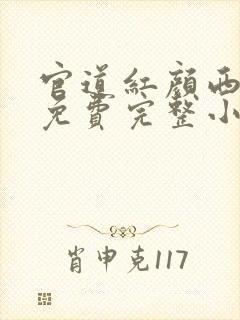 官道紅顔西
免費完整小
肖申克117